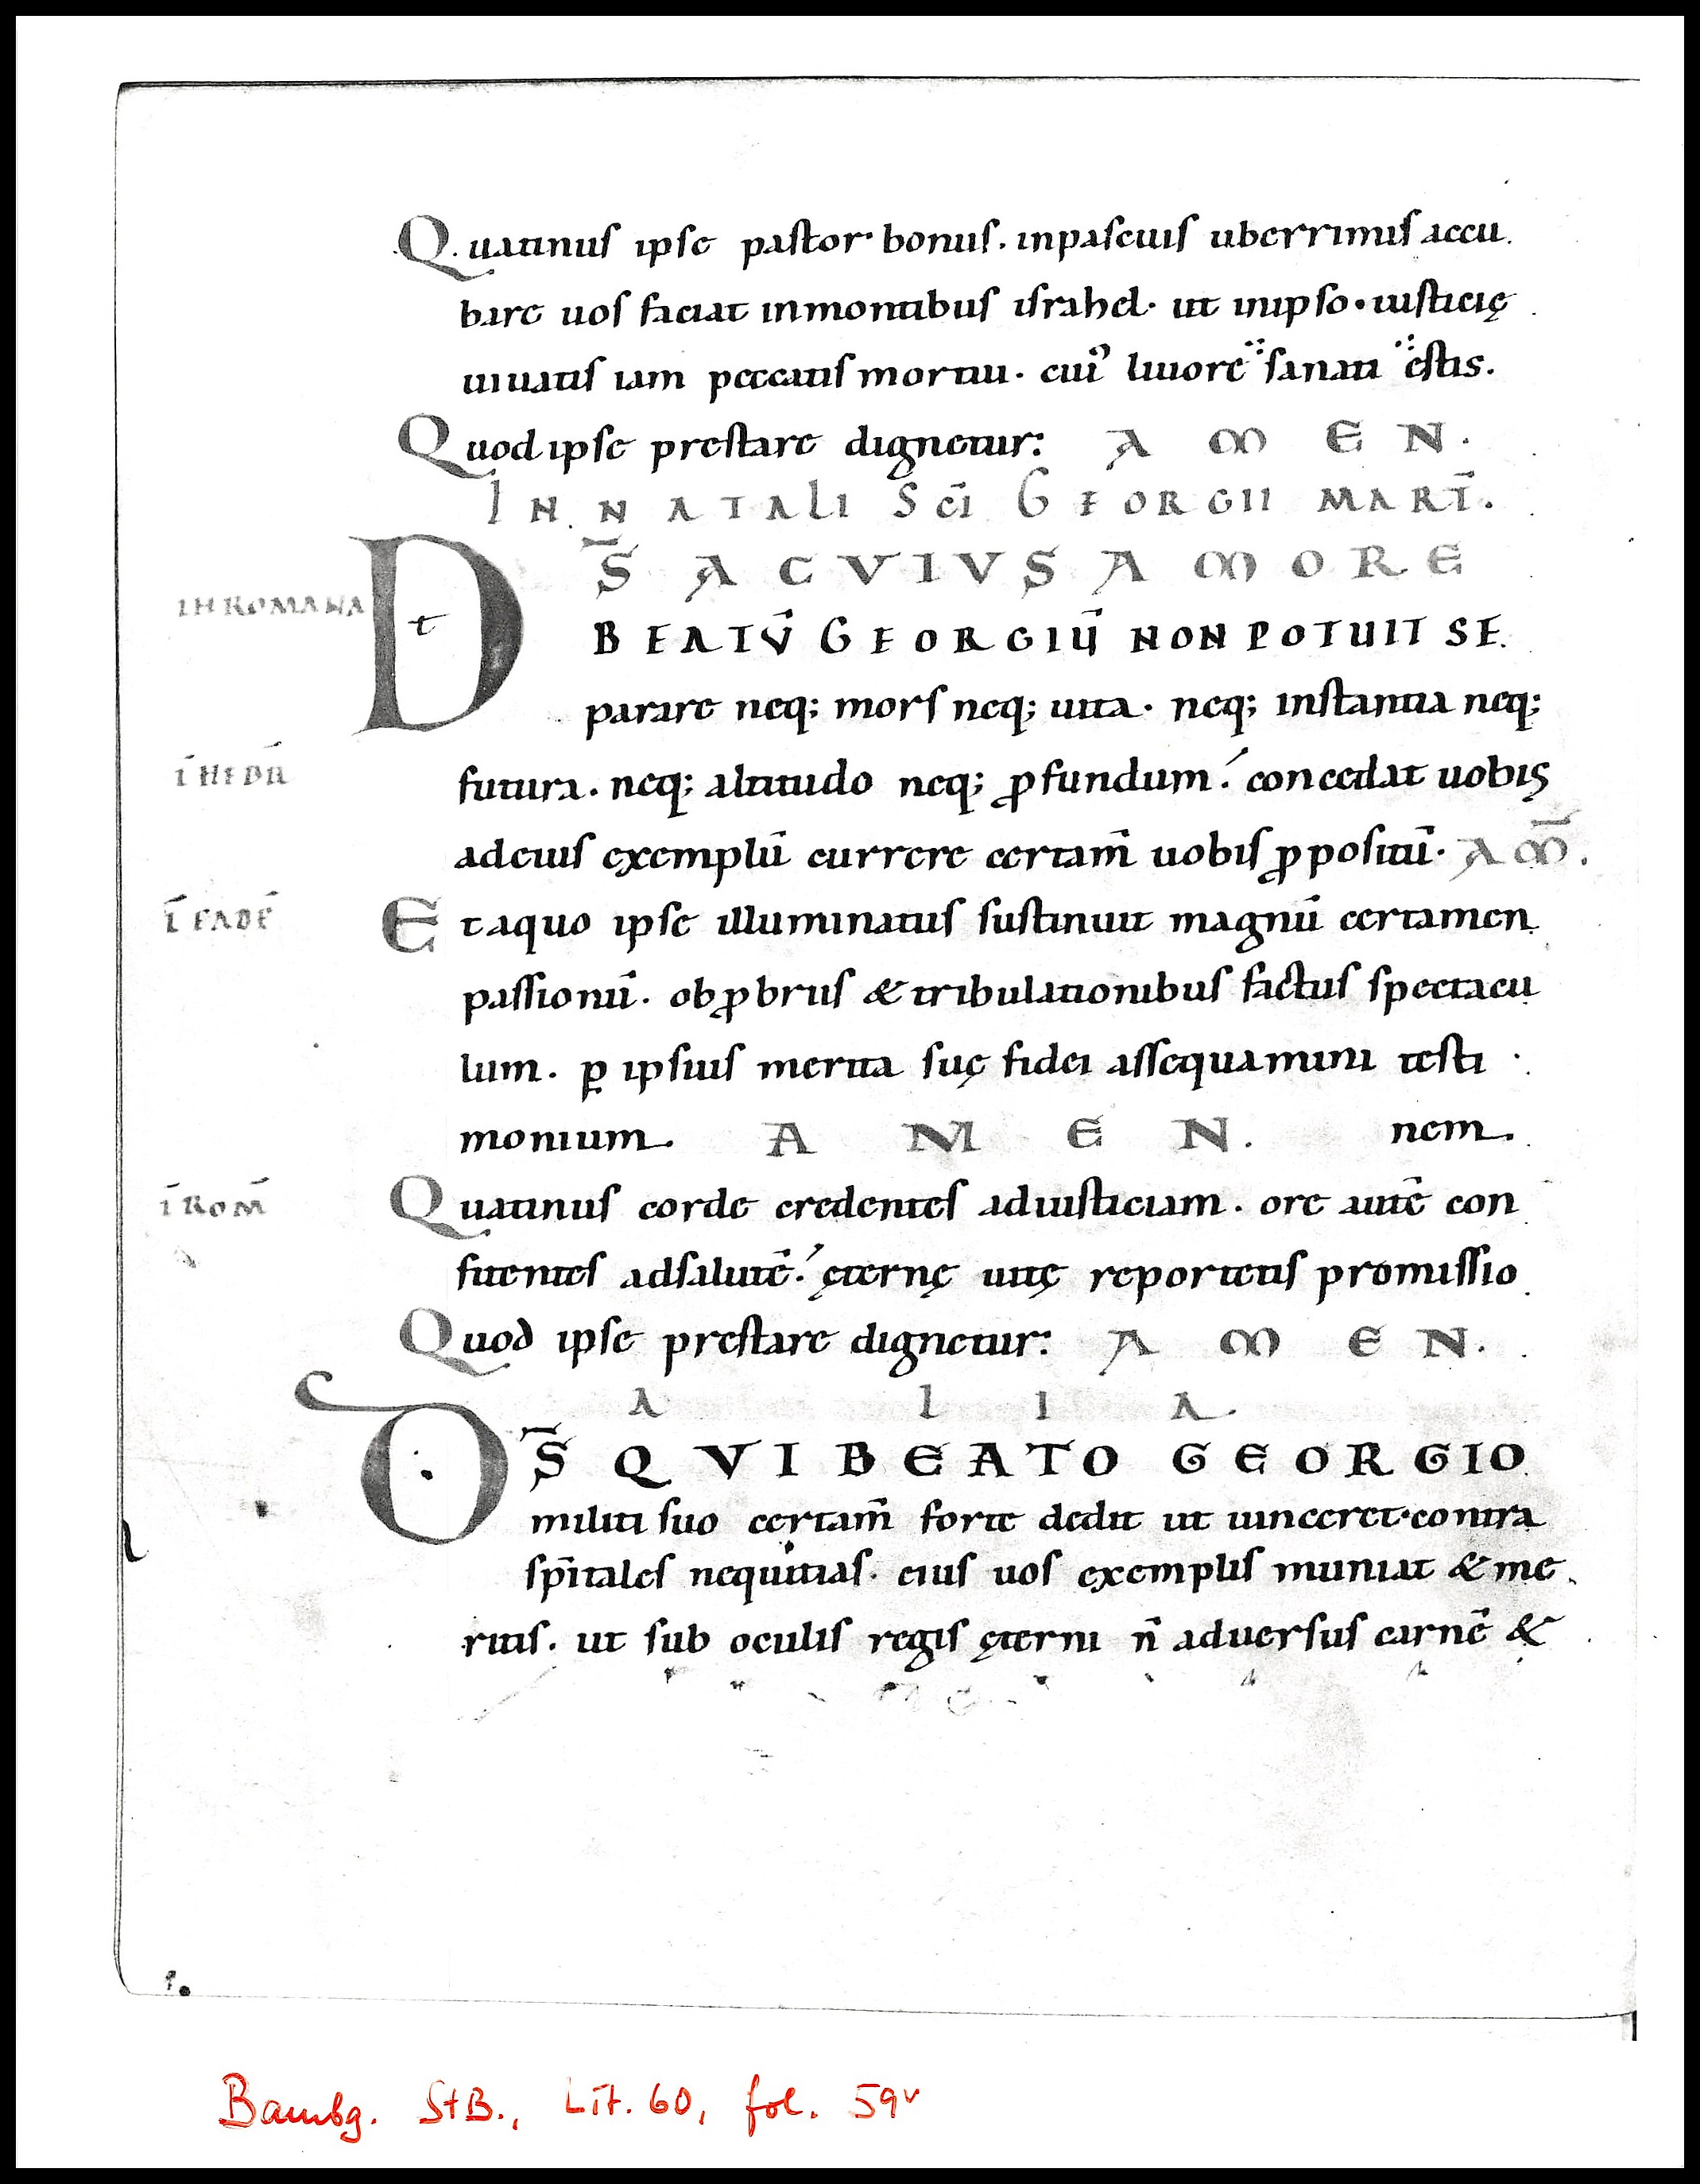 Quatinus ipse pastor bonus. inpascuis uberrimis accu
bare uos faciat inmontibus israhel· ut inipso· iusticię
uiuatis iam peccatis mortui· cuiꝰ liuore sanati estis.
Quod ipse prestare dignetur: A M E N.
IN NATALI SC̄I GEORGII MART̄.
D S̄ A CVIVS AMORE
IN ROMANA
BEATŪ GEORGIŪ NON POTUIT SE
parare neq; mors neq; uita· neq; instantia neq;
Ī HEBR̄
futura. neq; altitudo neq; ꝓfundum. concedat uobis
adcuius exemplū currere certam̄ uobis ꝓpositū· AM̄.
Ī EADĒ
Et aquo ipse illuminatus sustinuit magnū certamen
passionū. obꝓbriis & tribulationibus factus spectacu
lum. ꝑ ipsius merita suę fidei assequamini testi
monium. A M E N. nem.
Ī ROM̄
Quatinus corde credentes adiusticiam. ore autē con
fitentes adsalutē. ęternę uitę reportetis promissio
Quod ipse prestare dignetur: A M E N.
A L I A
DS̄ QVI BEATO GEORGIO
militi suo certam̄ forte dedit ut uinceret· contra
sp̄itales nequitias. eius uos exemplis muniat & me
ritis. ut sub oculis regis ęterni n̄ aduersus carnē &
Bambg. StB., Lit. 60, fol. 59v